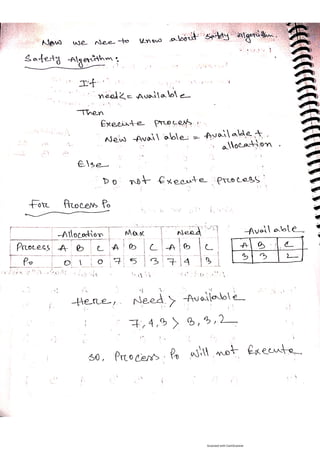 Now we need to know about safety algorithm.
Safety Algorithm:
If
need <= Available
Then
Execute process.
New Available = Available +
allocation.
Else
Do not Execute process
For Process P0
Allocation Max Need Available
Process A B C A B C A B C A B C
P0 0 1 0 7 5 3 7 4 3 3 3 2
Here, Need > Available
7,4,3 > 3,3,2
So, Process P0 will not Execute
Scanned with CamScanner